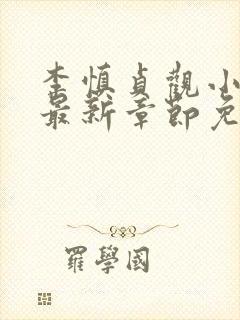 李慎貞觀小
最新章節免
羅學國